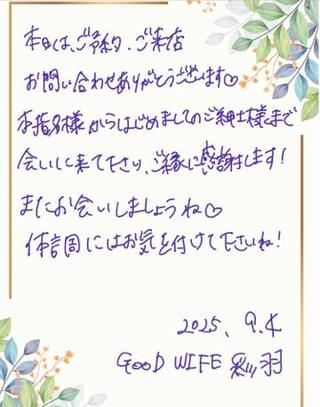 本日は、ご予約、ご来店
お問い合わせありがとうございます♡
本指名様からはじめましてのご紳士様まで
会いに来て下さり、ご縁に感謝します！
またお会いしましょうね♡
体調にはお気を付けて下さいね！
2025. 9.4
GOOD WIFE 彩羽